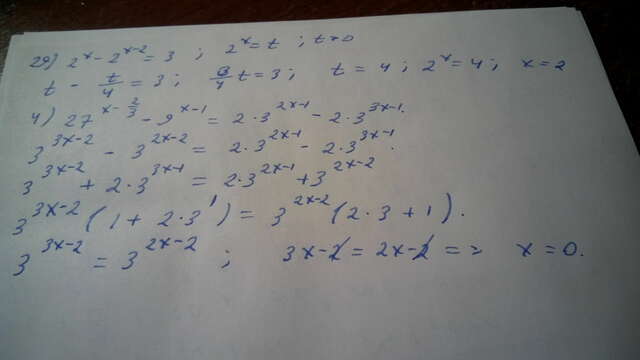 29) 2^x - 2^(x-2) = 3 ; 2^x = t ; t>0
t - t/4 = 3 ; 3/4 t = 3 ; t = 4 ; 2^x = 4 ; x = 2
4) 27^(x - 2/3) - 9^(x-1) = 2·3^(2x-1) - 2·3^(3x-1).
3^(3x-2) - 3^(2x-2) = 2·3^(2x-1) - 2·3^(3x-1).
3^(3x-2) + 2·3^(3x-1) = 2·3^(2x-1) + 3^(2x-2)
3^(3x-2) (1 + 2·3^1) = 3^(2x-2) (2·3+1).
3^(3x-2) = 3^(2x-2) ; 3x-2 = 2x-2 => x = 0.